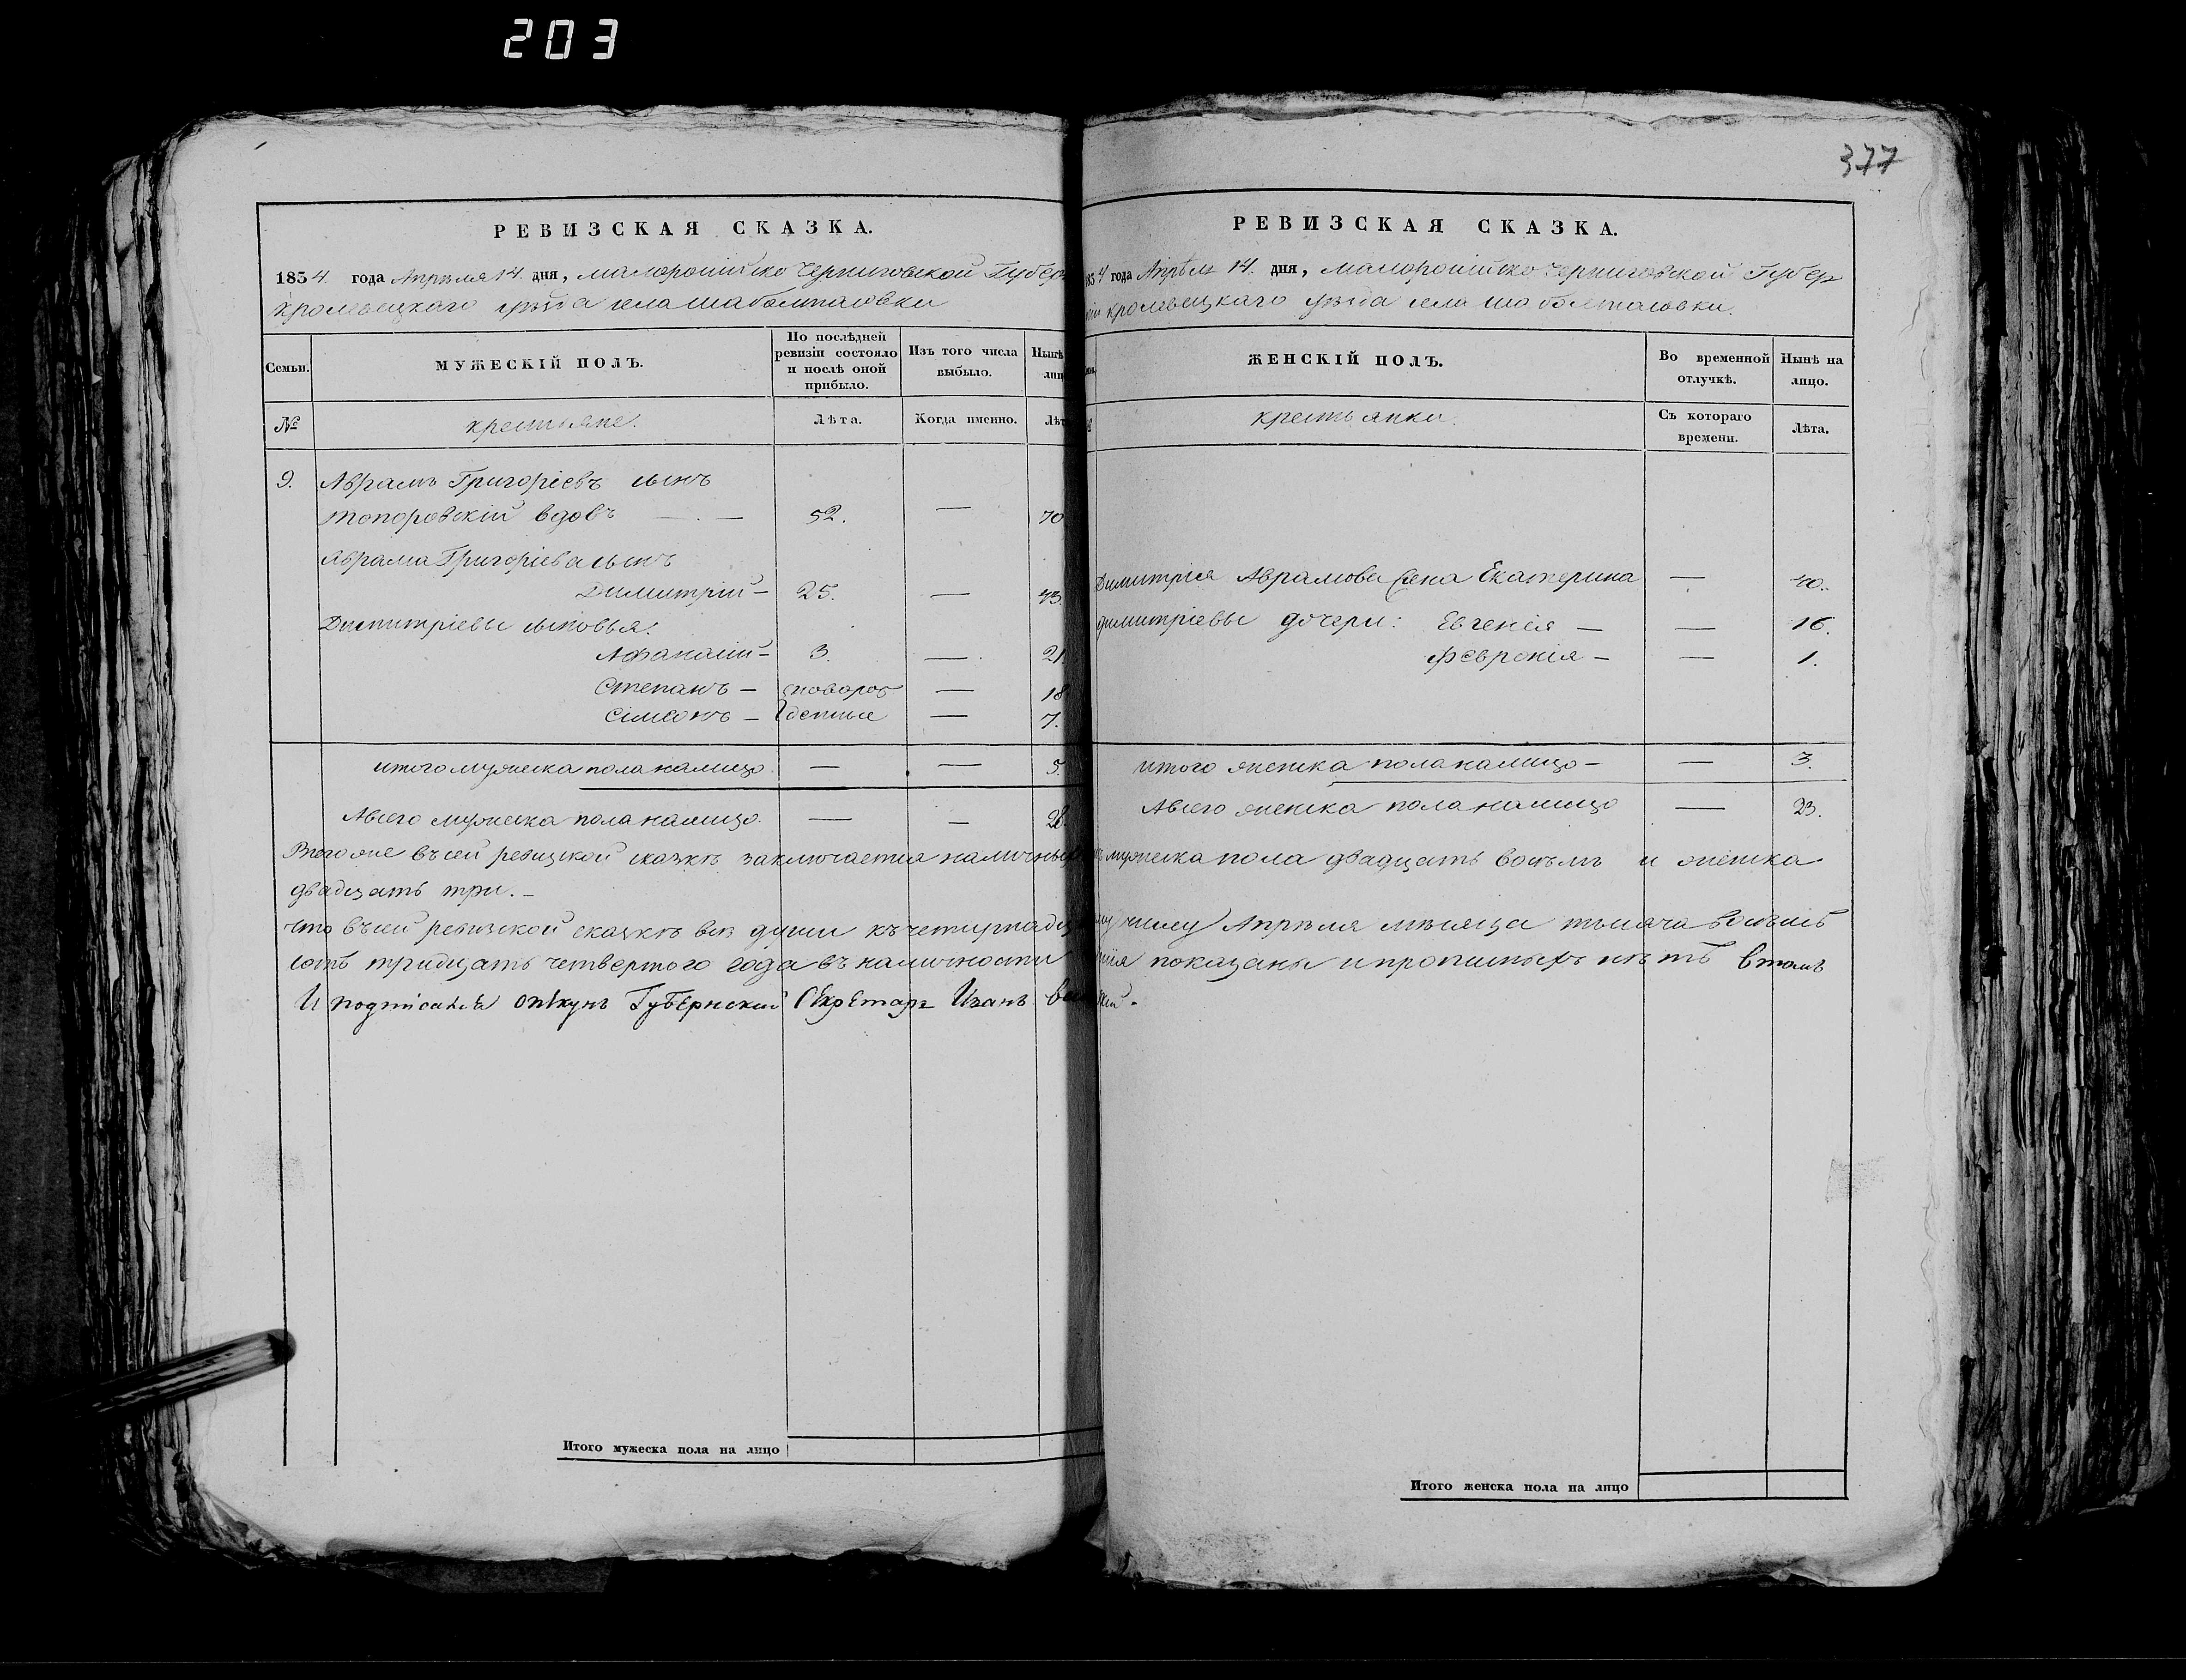 203
377
РЕВИЗСКАЯ СКАЗКА.
1834 года Апреля 14. дня, малоросiйско Черниговской Губер
кролевецкаго уѣзда села шаболтасовки
Семьи.
МУЖЕСКІЙ ПОЛЪ.
По послѣдней ревизіи состояло и послѣ оной прибыло.
Изъ того числа выбыло.
Нынѣ
лиц
№
крестьяне.
Лѣта.
Когда именно.
Лѣт
9. Аврамъ Григоріевъ сынъ
топоровскій вдовъ — . — 52. — 70
Аврама Григоріева сынъ
Димитрій — 25. — 43.
Димитріевы сыновья:
Афанасій — 3. — 21
Степанъ — новорож — 18
Сімеонъ — денные — 7.
итого мужеска пола налицо — — 5.
Авсего мужеска пола налицо. — — 28.
РЕВИЗСКАЯ СКАЗКА.
834 года Апрѣля 14. дня, малоросiйско Черниговской Губер
ніи кролевецкаго уѣзда села шаболтасовки.
ЖЕНСКІЙ ПОЛЪ.
Во временной отлучкѣ.
Нынѣ на лицо.
крестьянки.
Съ котораго времени.
Лѣта.
Димитрія Аврамова жена Екатерина — 40.
димитріевы дочери: Евгенія — — 16.
Февронія — — 1.
итого женска пола налицо — — 3.
Авсего женска пола налицо — 23.
Всего же въ сей ревизской сказкѣ заключается наличныхъ мужеска пола двадцать восъмъ и женска
двадцать три. —
что въ сей ревизской сказкѣ все души къ четырнадц му числу Апреля мѣсяца тысяча восъмъ
сотъ тридцать четвертого года въ наличности показаны и прописныхъ нѣтъ втомъ
И подписался опѣкунъ Губернский Секретарь Иванъ
Итого мужеска пола на лицо
Итого женска пола на лицо